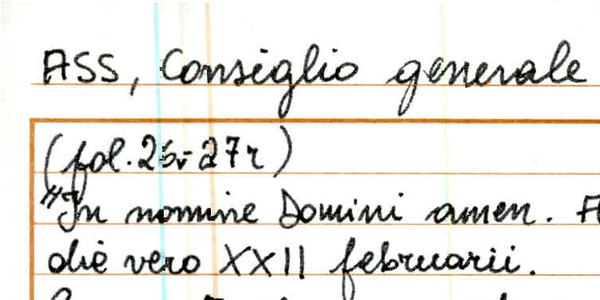 ASS, Consiglio generale
(fol. 26v-27r)
"In nomine Domini amen. A
die vero XXII februarii.